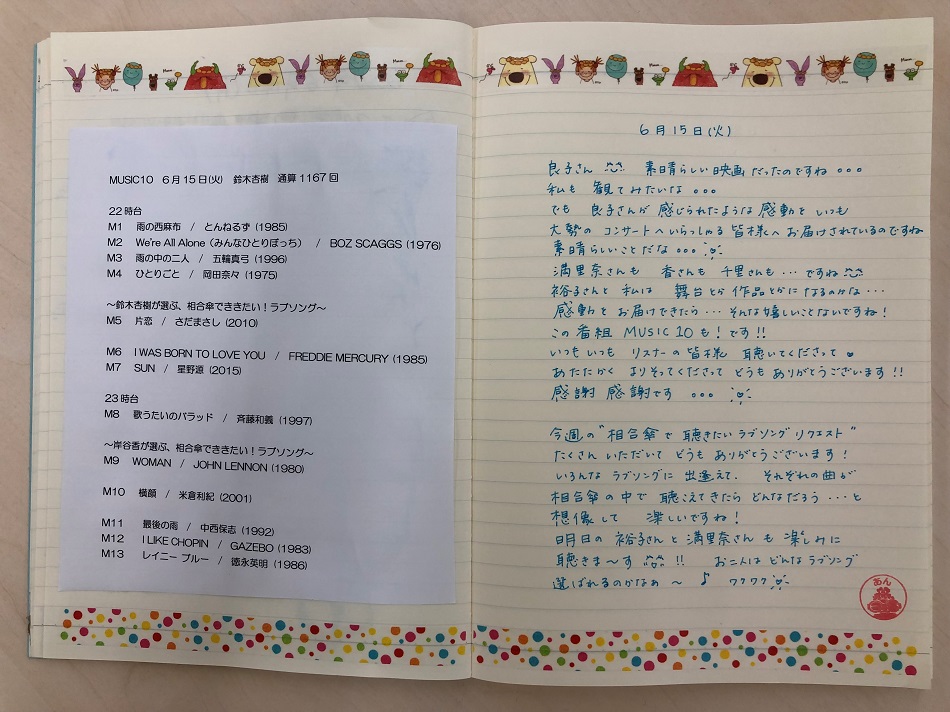 MUSIC10 6月15日(火) 鈴木杏樹 通算1167回
22時台
M1 雨の西麻布 / とんねるず (1985)
M2 We're All Alone（みんなひとりぼっち） / BOZ SCAGGS (1976)
M3 雨の中の二人 / 五輪真弓 (1996)
M4 ひとりごと / 岡田奈々 (1975)
～鈴木杏樹が選ぶ、相合傘でききたい！ラブソング～
M5 片恋 / さだまさし (2010)
M6 I WAS BORN TO LOVE YOU / FREDDIE MERCURY (1985)
M7 SUN / 星野源 (2015)
23時台
M8 歌うたいのバラッド / 斉藤和義 (1997)
～岸谷香が選ぶ、相合傘でききたい！ラブソング～
M9 WOMAN / JOHN LENNON (1980)
M10 横顔 / 米倉利紀 (2001)
M11 最後の雨 / 中西保志 (1992)
M12 I LIKE CHOPIN / GAZEBO (1983)
M13 レイニー ブルー / 徳永英明 (1986)
6月15日(火)
良子さん 素晴らしい映画だったのですね。。。
私も 観てみたいな。。。
でも 良子さんが 感じられたような 感動を いつも
大勢の コンサートへいらっしゃる 皆様へ お届けされているのですね
素晴らしいことだな。。。
満里奈さんも 香さんも 千里さんも… ですね
裕子さんと 私は 舞台とか 作品とかに なるのかな…
感動を お届けできたら… そんな嬉しいことないですね！
この番組 MUSIC10も！です!!
いつも いつも リスナーの 皆様 聴いてくださって
あたたかく よりそってくださって どうも ありがとうございます!!
感謝 感謝です 。。。
今週の"相合傘で 聴きたい ラブソング リクエスト"
たくさん いただいて どうも ありがとうございます！
いろんな ラブソングに 出逢えて、 それぞれの曲が
相合傘の中で 聴こえてきたら どんなだろう…と
想像して 楽しいですね！
明日の 裕子さんと 満里奈さん も 楽しみに
聴きま～す !! おこんは どんな ラブソング
選ばれるのかなぁ～ ♪ ワクワク
あん